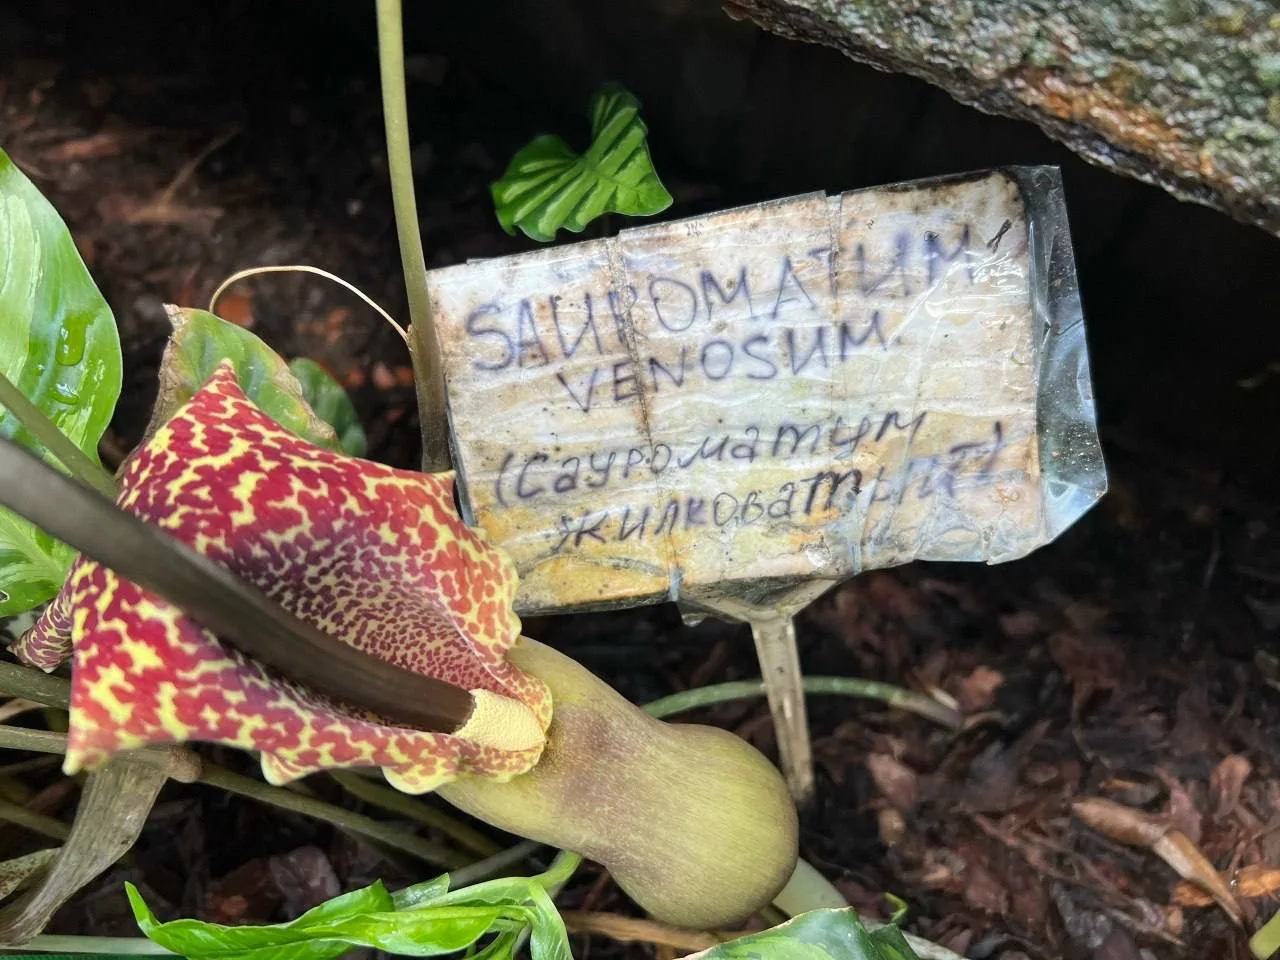 SAUROMATUM
VENOSUM
(Сауроматум
жилковатый)